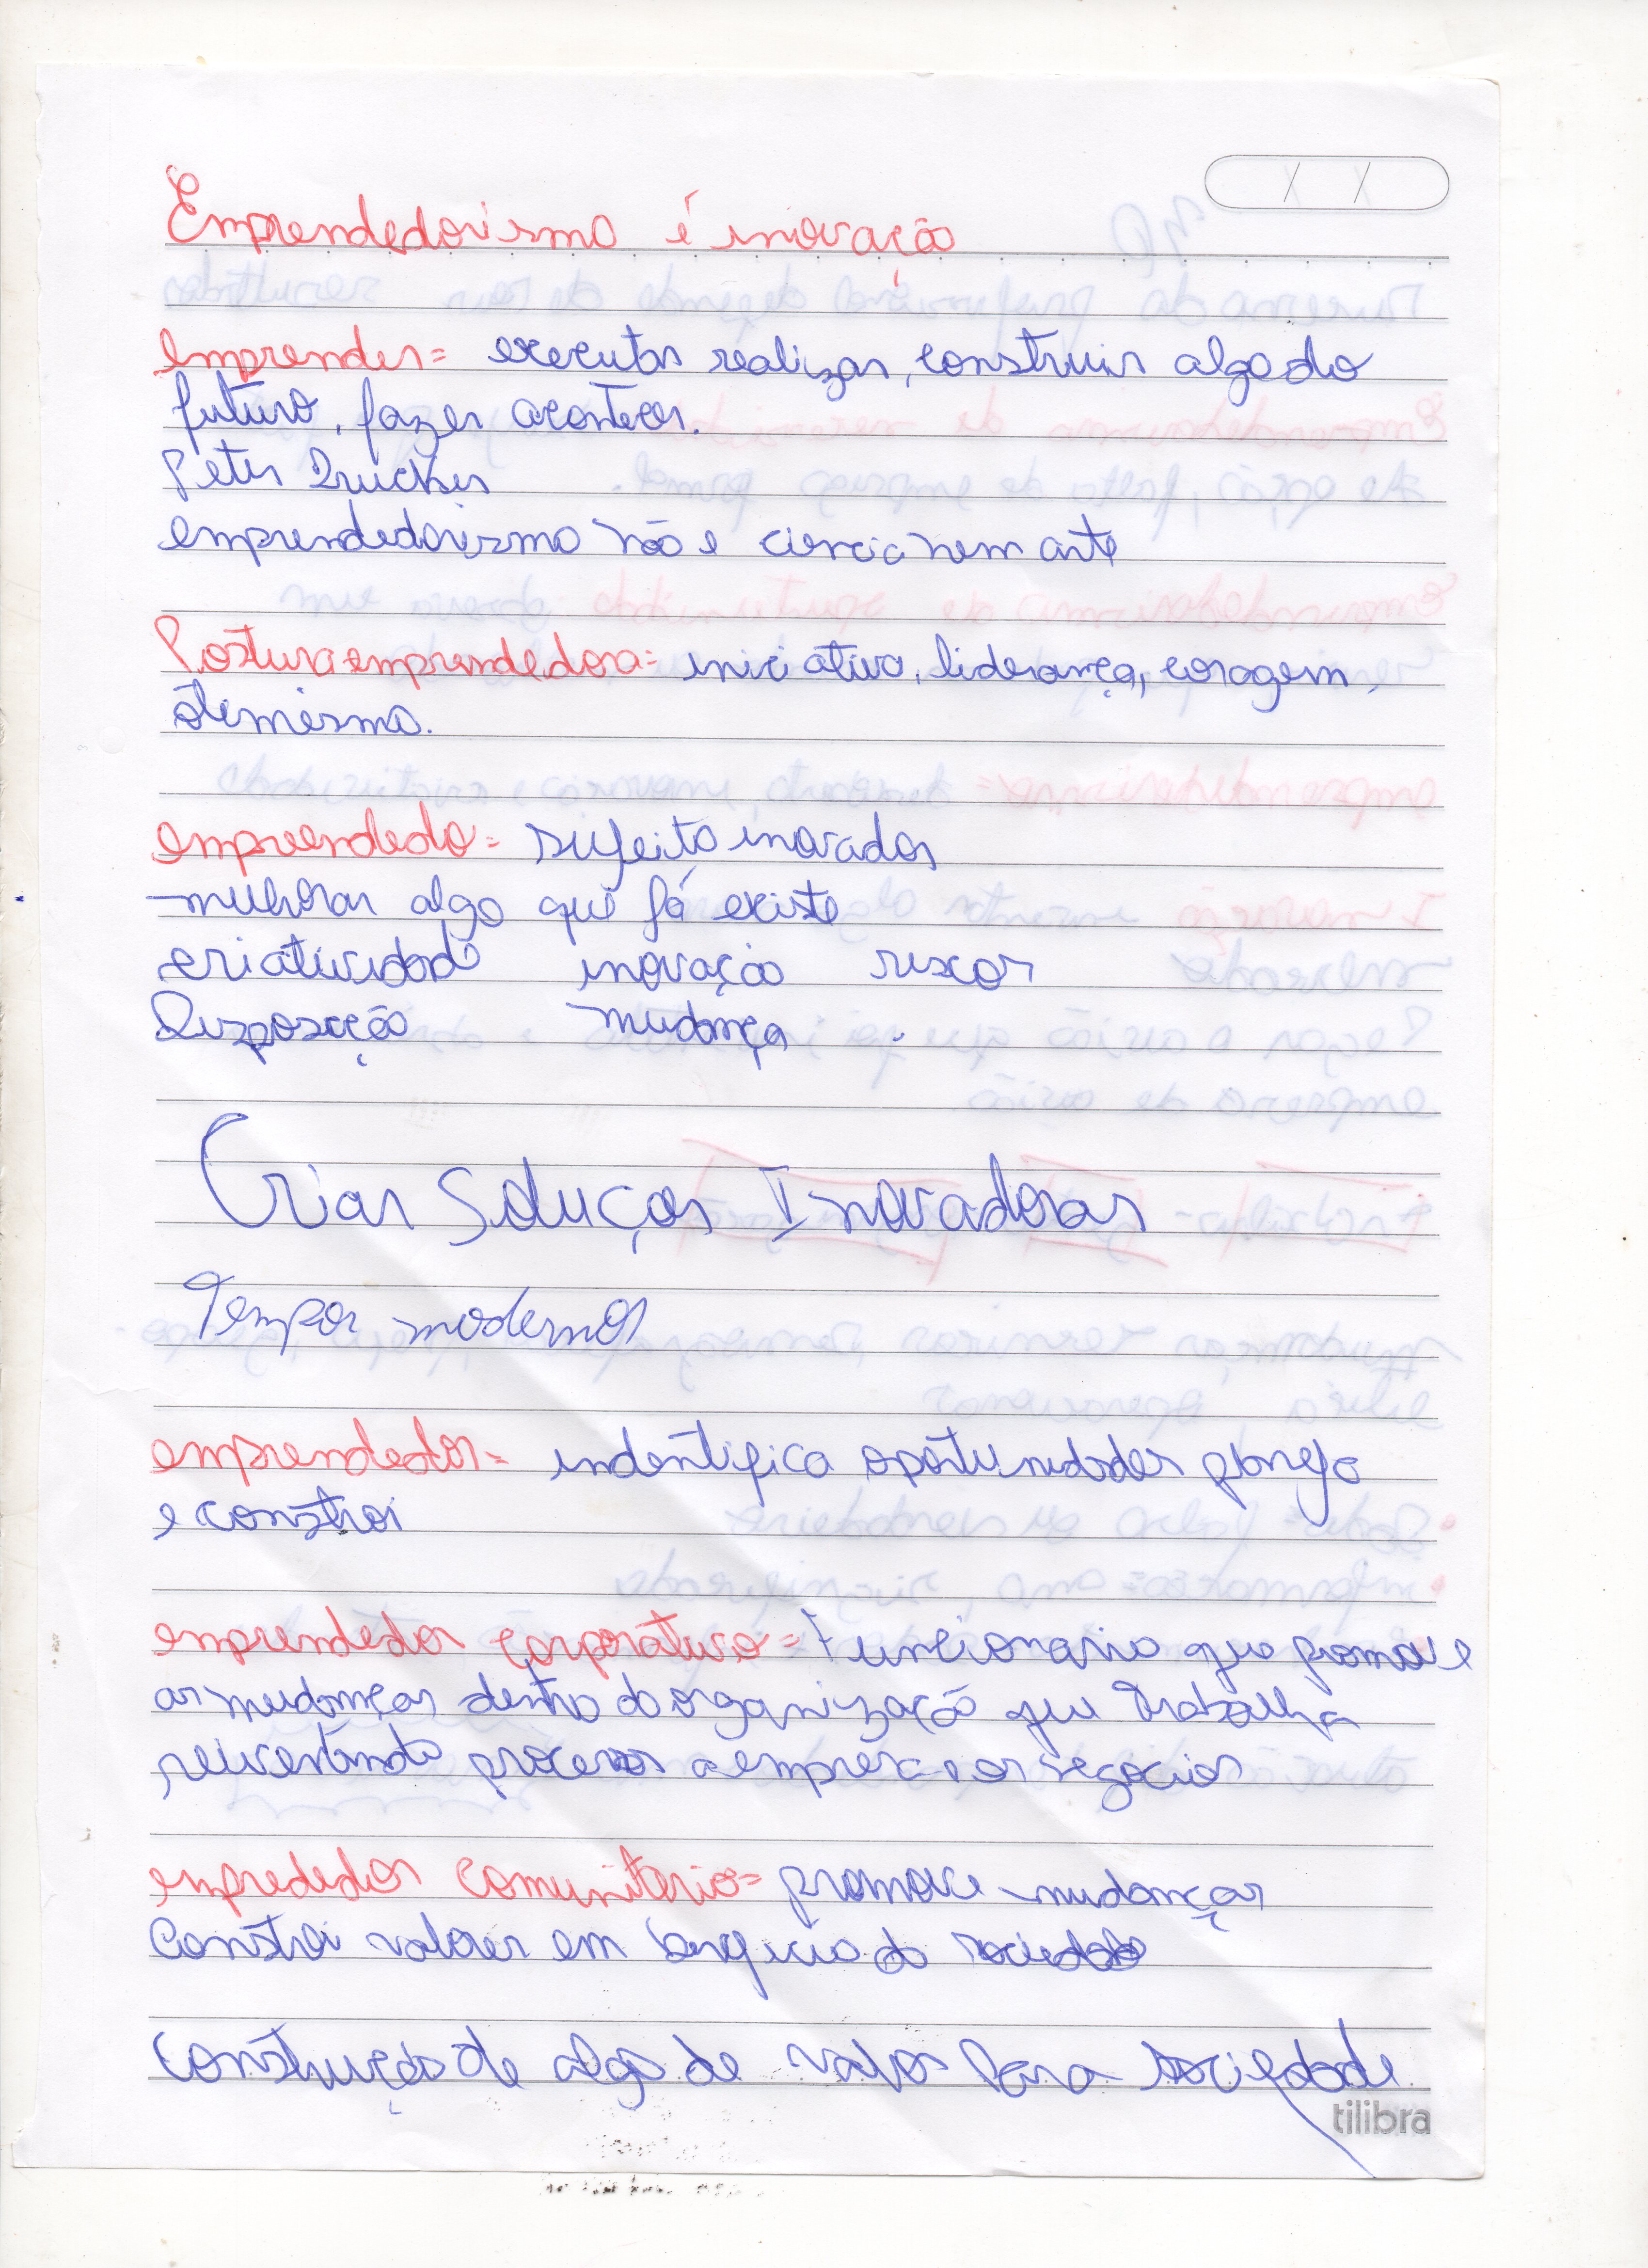 Emprendedorismo é inovação
emprender= executar realizar, construir algo do
futuro, fazer acontecer.
Peter Drucker
emprendedorismo não e ciencia nem arte
Postura emprendedora= iniciativa, liderança, coragem,
otimismo.
empreendedo= sujeito inovador
melhorar algo que já existe
criatividade inovação riscos
Disposição mudança
Criar Soluços Inovadoras
Tempos modernos
emprendedor= indentifica oportunidades planeja
e constroi
emprendedor corporativo= Funcionario que promove
as mudanças dentro da organização que trabalha
reiventando processos a empresa e os negocios
empredador comunitario= promove mudanças
Constroi valores em beneficio da sociedade
Construção de algo de valor para sociedade
tilibra